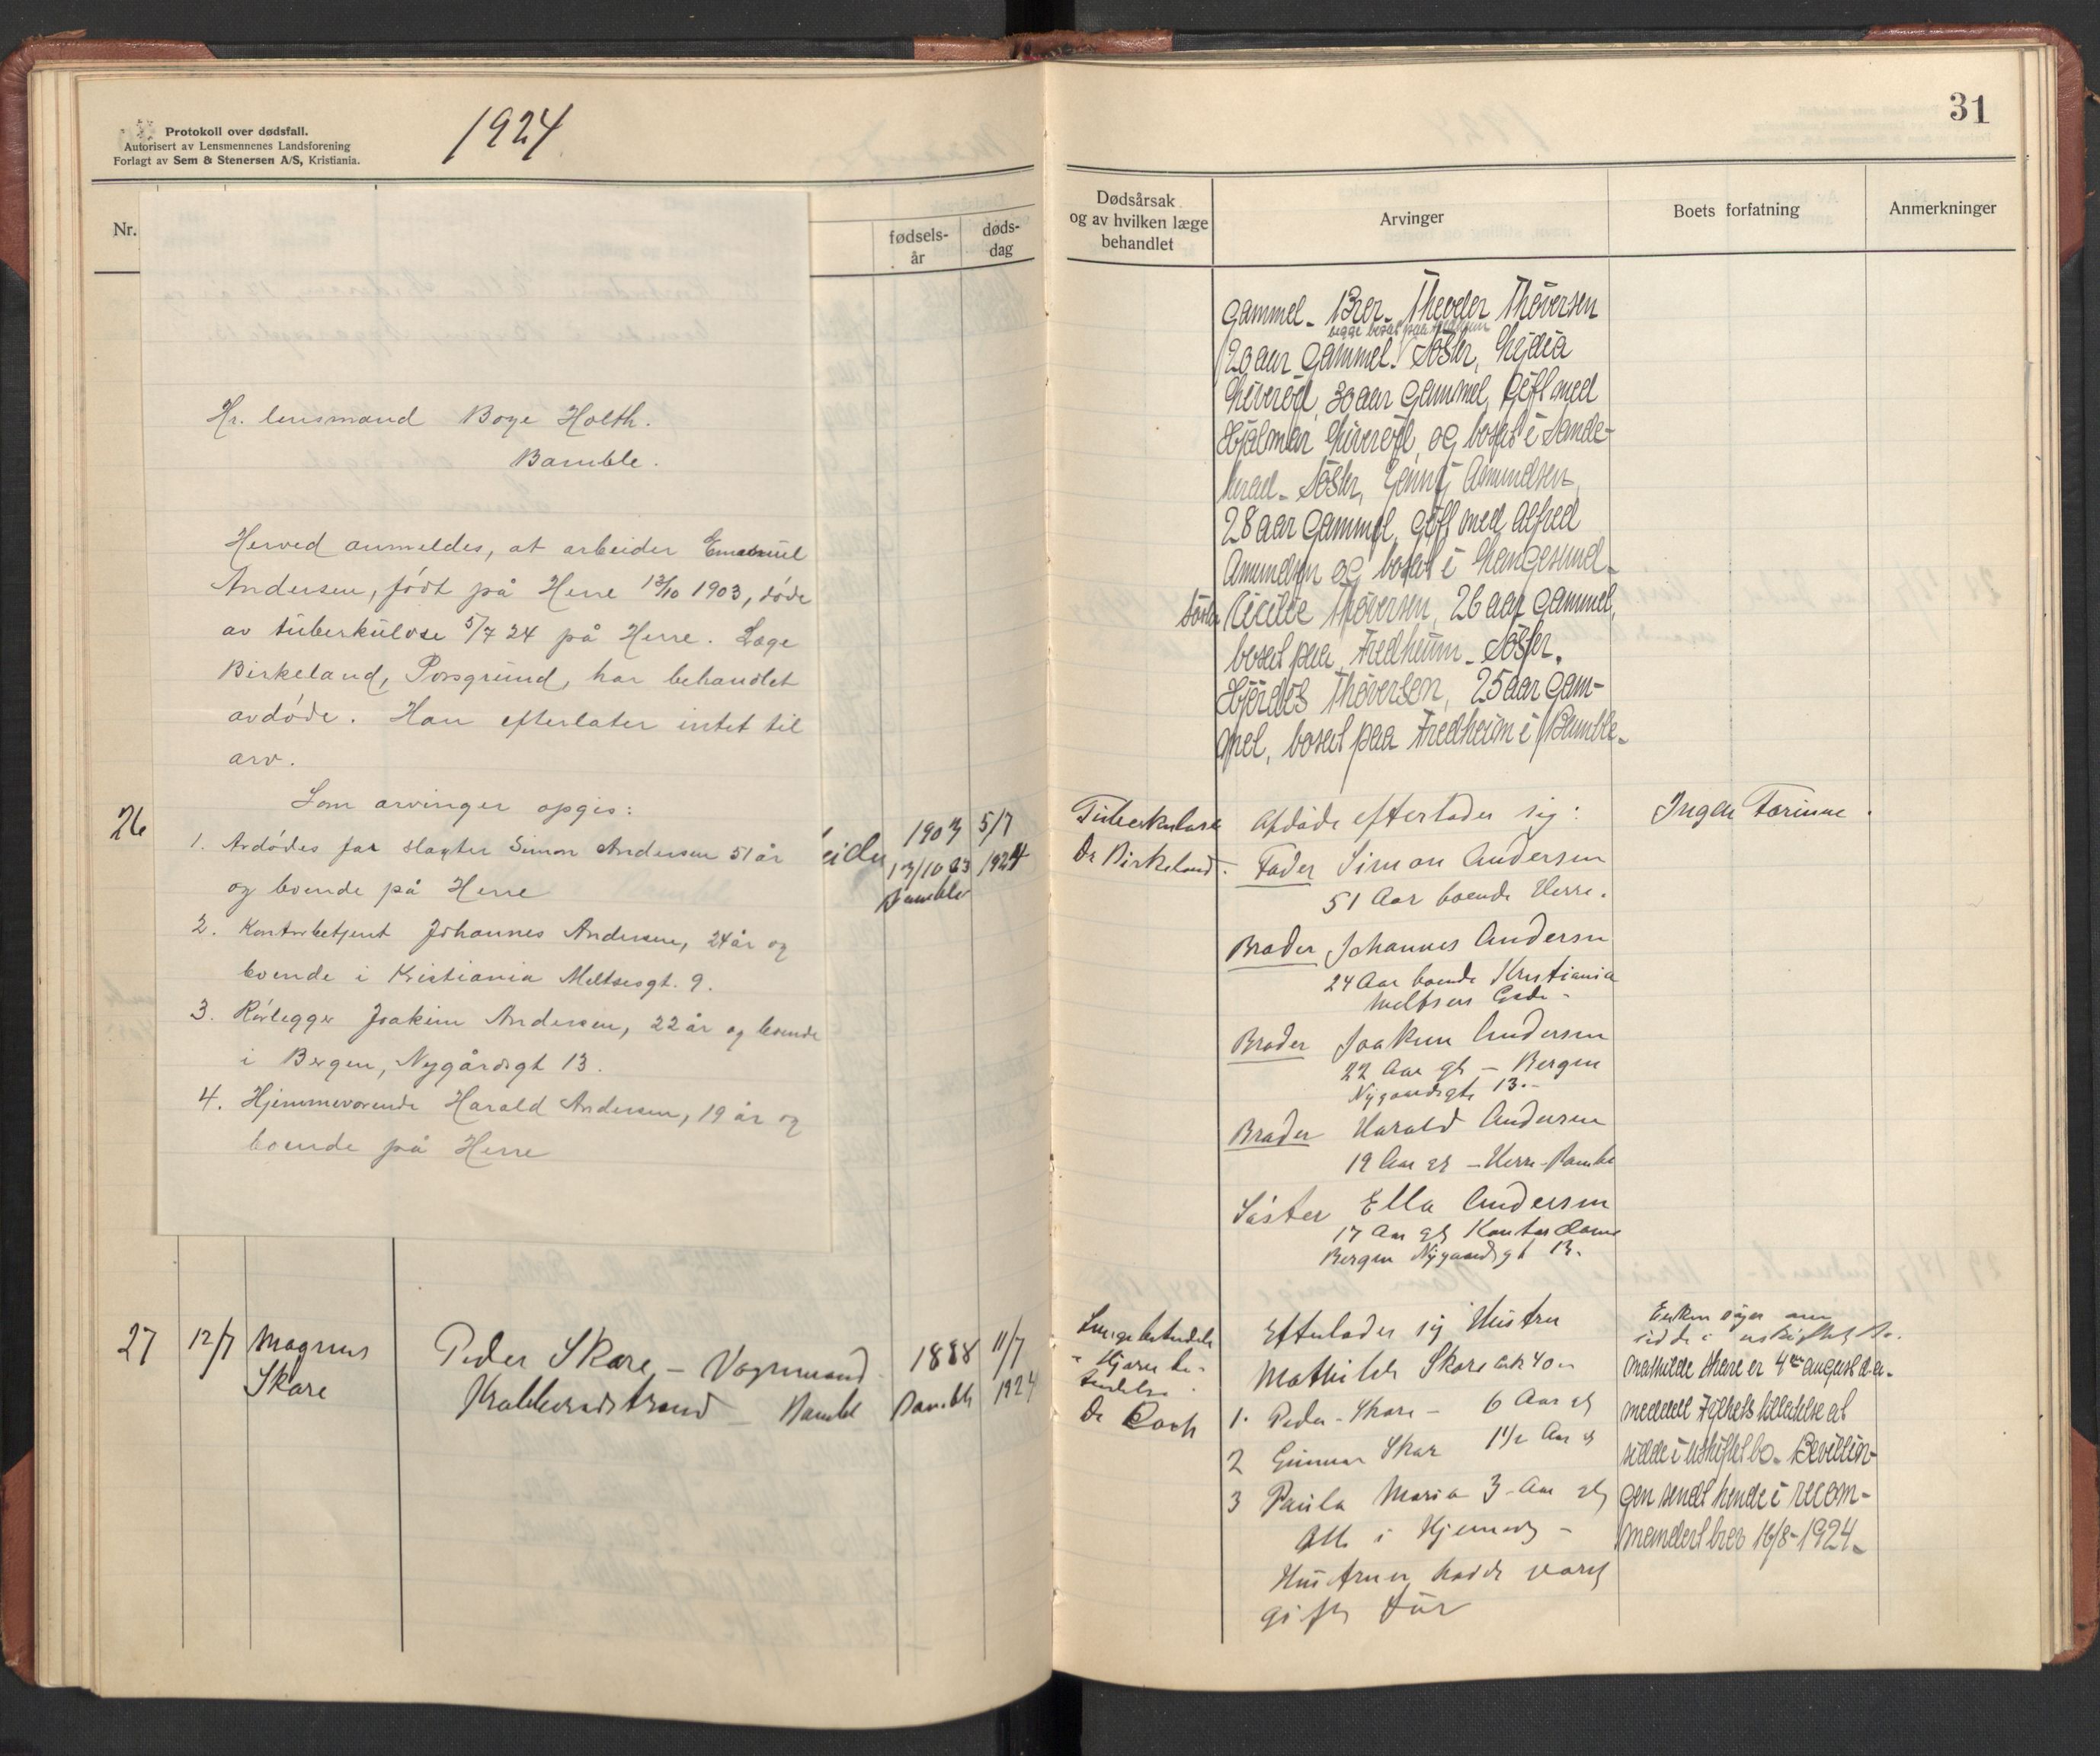 Protokoll over dødsfall.
Autorisert av Lensmennenes Landsforening
Forlagt av Sem & Stenersen A/S, Kristiania.
1924
Nr.
fødsels-
år
døds-
dag
Hr. lensmand Boye Holth.
Bamble.
Herved anmeldes, at arbeider Emanuel
Andersen, født på Herre 13/10 1903, døde
av tuberkuløse 5/7 24 på Herre. Læge
Birkeland, Porsgrund, har behandlet
avdøde. Han efterlater intet til
arv.
Som arvinger opgis:
1. Avdødes far slagter Simon Andersen 51 år
og boende på Herre
2. Kontorbetjent Johannes Andersen, 24 år og
boende i Kristiania Meltzesgt. 9.
3. Rörlegger Joakim Andersen, 22 år og boende
i Bergen, Nygårdsgt 13.
4. Hjemmeværende Harald Andersen, 19 år og
boende på Herre
26
eider
1903 5/7
13/10 03 1924
Bamble
27 12/7 Magnus
Skare
Peder Skare – Vognmand
Krabberødstrand – Bamble
1888 11/7
Bamble 1924
31
Dødsårsak
og av hvilken læge
behandlet
Arvinger
Boets forfatning
Anmerkninger
gammel – Bror – Theodor Thoversen
begge bosat paa Fredheim
20 aar gammel. Søster, Lydia
Liverød, 30 aar gammel, gift med
Hjalmar Liverød, og bosat i Sande-
herad – Søster, Jenny Amundsen
28 aar gammel, gift med Alfred
Amundsen og bosat i Langesund –
Søster Cecilie Thoversen, 26 aar gammel,
bosat paa Fredheim – Søster,
Hjørdis Thoversen, 25 aar gam-
mel, bosat paa Fredheim i Bamble –
Tuberkulose
Dr Birkeland.
Afdøde efterlader sig:
Fader Simon Andersen
51 Aar boende Herre.
Broder Johannes Andersen
24 Aar boende Kristiania
Meltsers Gade –
Broder Joakim Andersen
22 Aar gl – Bergen
Nygaardsgt 13. –
Broder Harald Andersen
19 Aar gl – Herre – Bamble
Søster Ella Andersen
17 Aar gl Kontordame
Bergen Nygaardsgt 13.
Ingen Formue.
Lungebetendelse
– Hjerne be-
tendelse.
Dr Coch
Efterlader sig Hustru
Mathilde Skare
1. Peder – Skare – 6 Aar gl
2 Gunnar Skare 1 1/2 Aar gl
3 Paula Maria 3 – Aar gl
Alle i Hjemmet –
Hustruen havde været
gift før
Enken siger om
sidde i uskiftet bo.
Mathilde Skare er 4de august d.a.
meddelt Fylkets tilladelse at
sidde i uskiftet bo – Bevillin-
gen sendt hende i recom-
mandert brev 16/8 – 1924 –